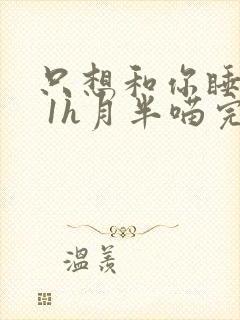 只想和你睡
1h月半喵完
温羡